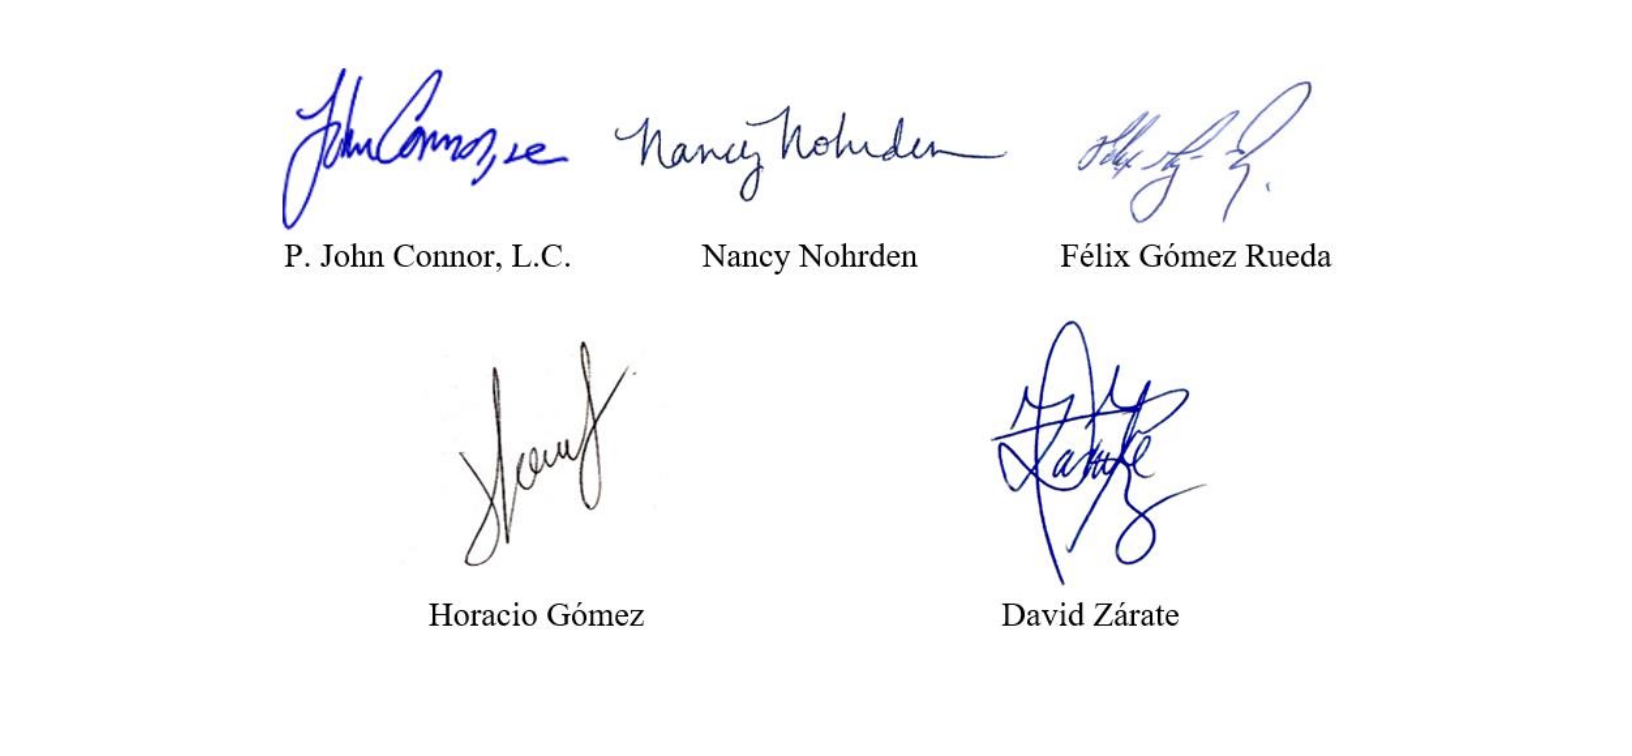 John Connor, LC Nancy Nohrden
P. John Connor, L.C. Nancy Nohrden Félix Gómez Rueda
Zárate
Horacio Gómez David Zárate